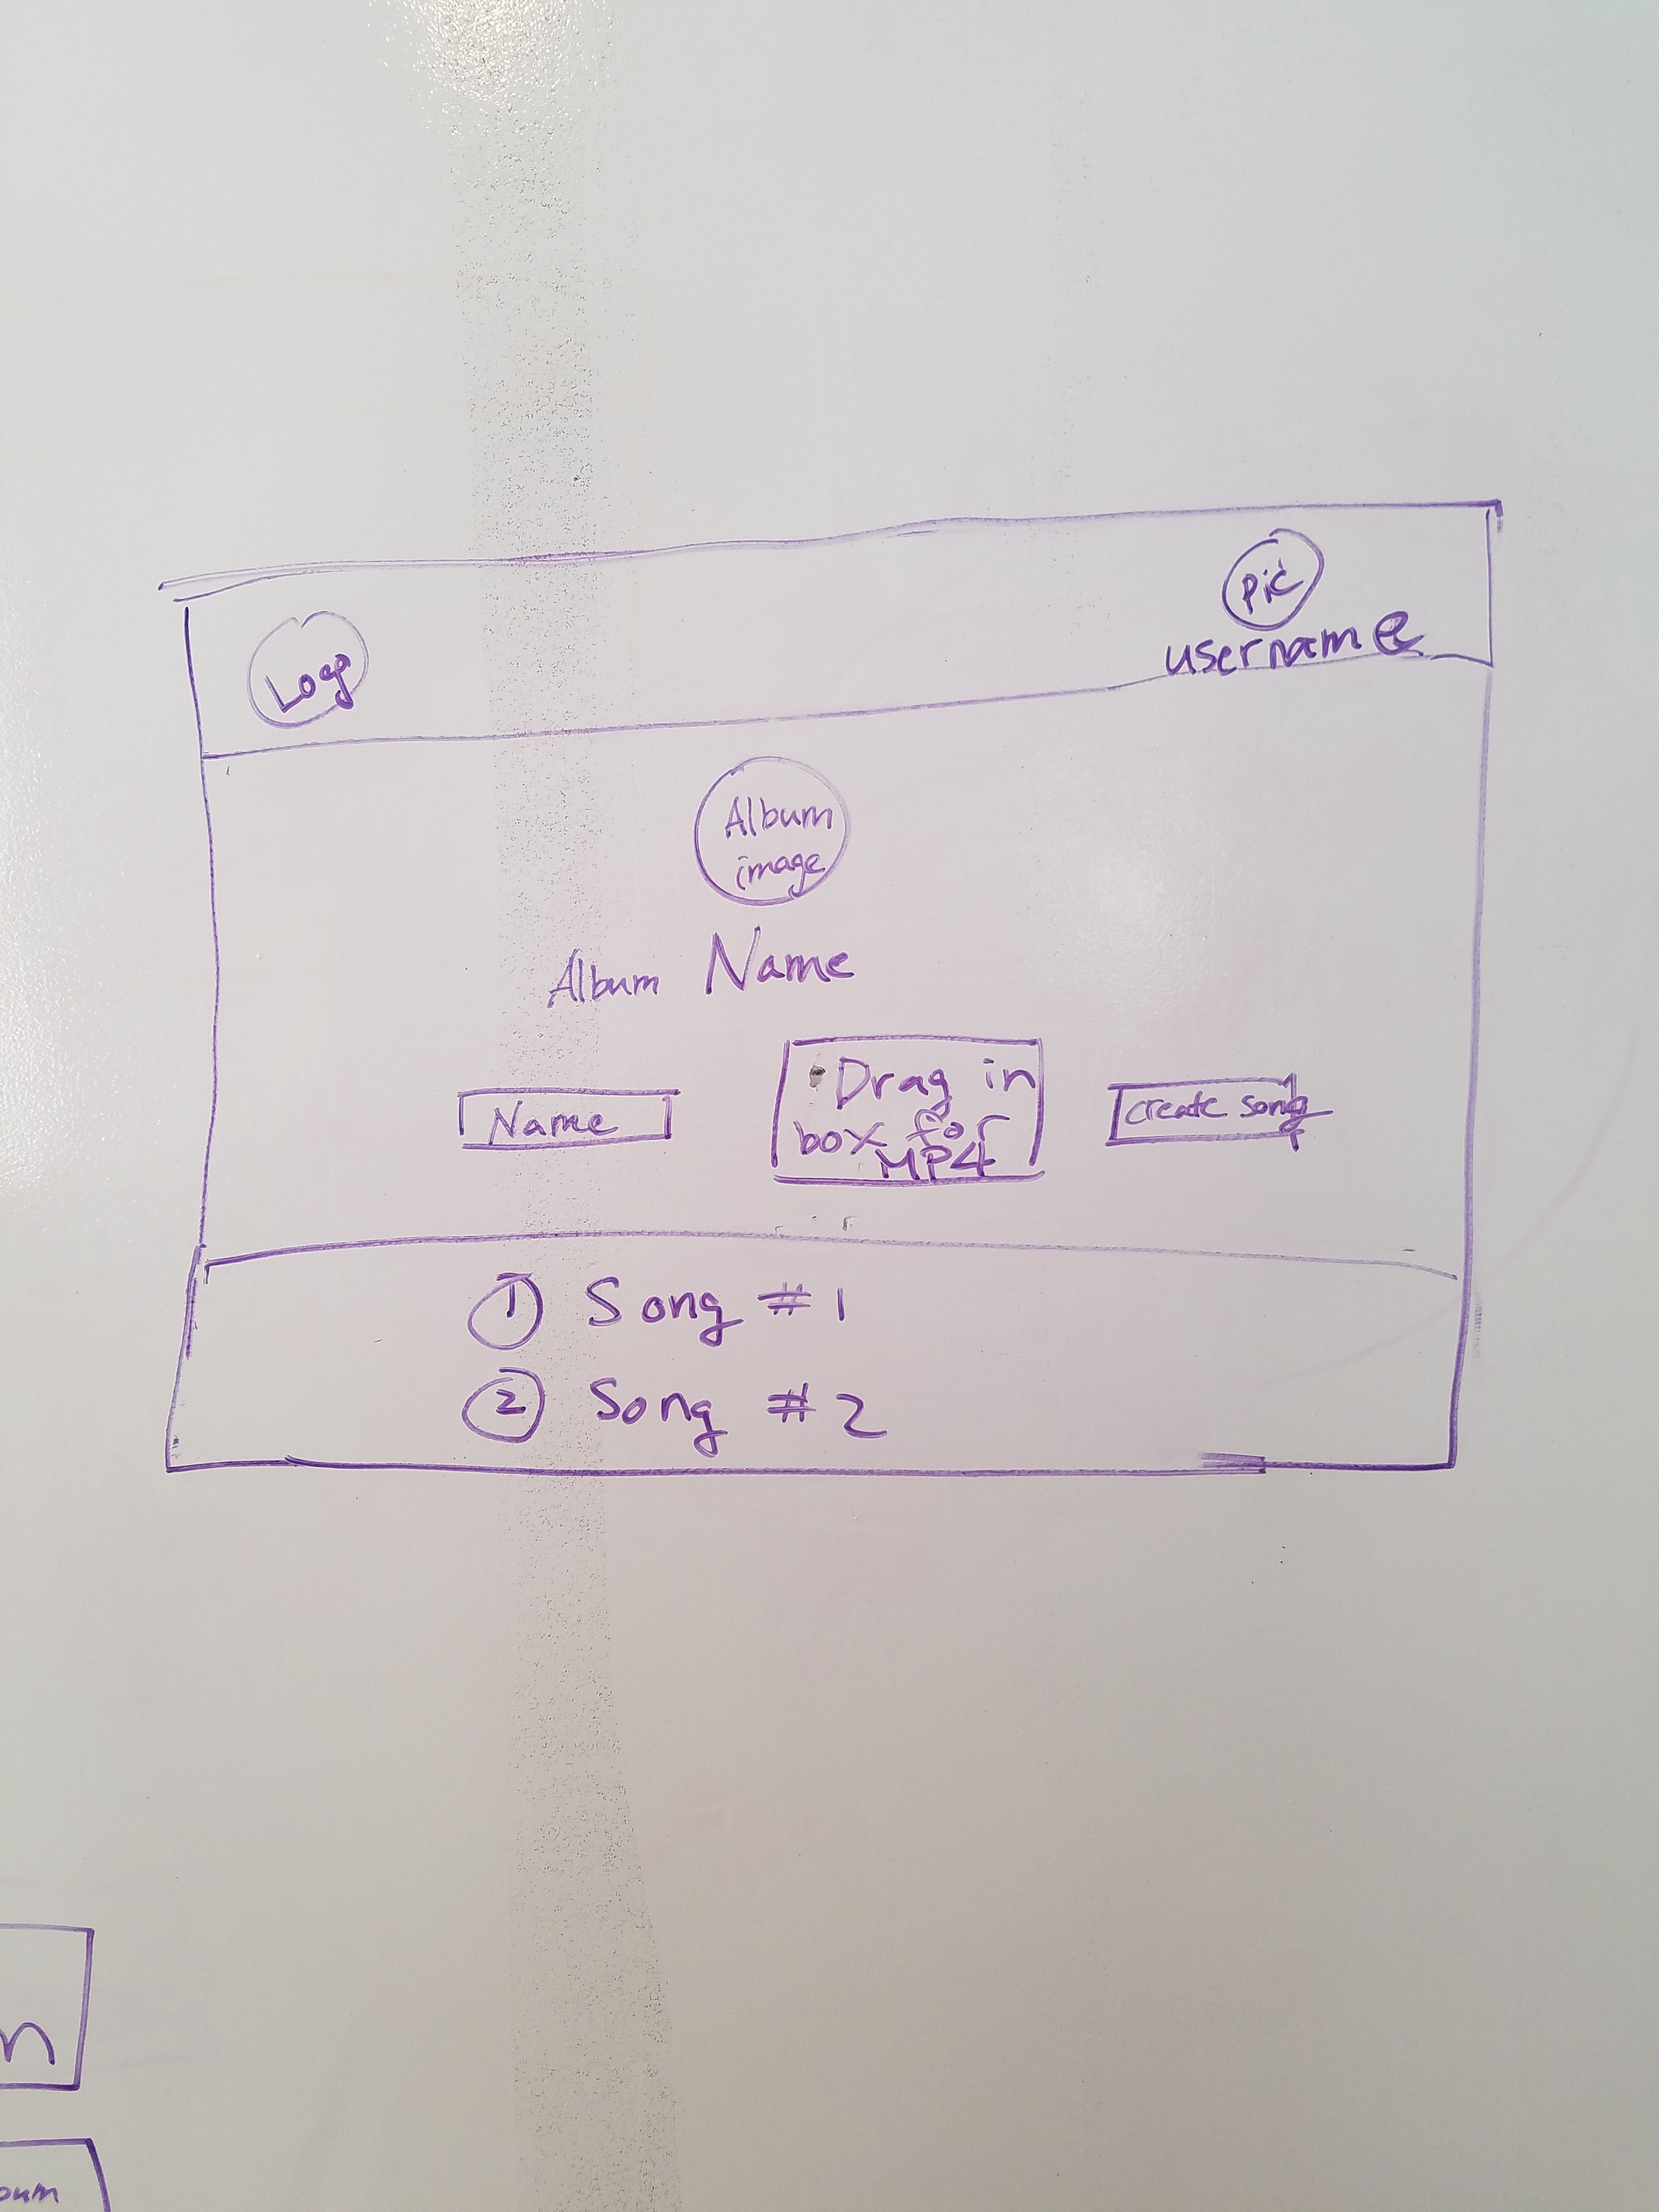 Logo
Pic
username
Album
image
Album Name
Name
Drag in
box for
MP4
create song
1 Song #1
2 Song #2
n